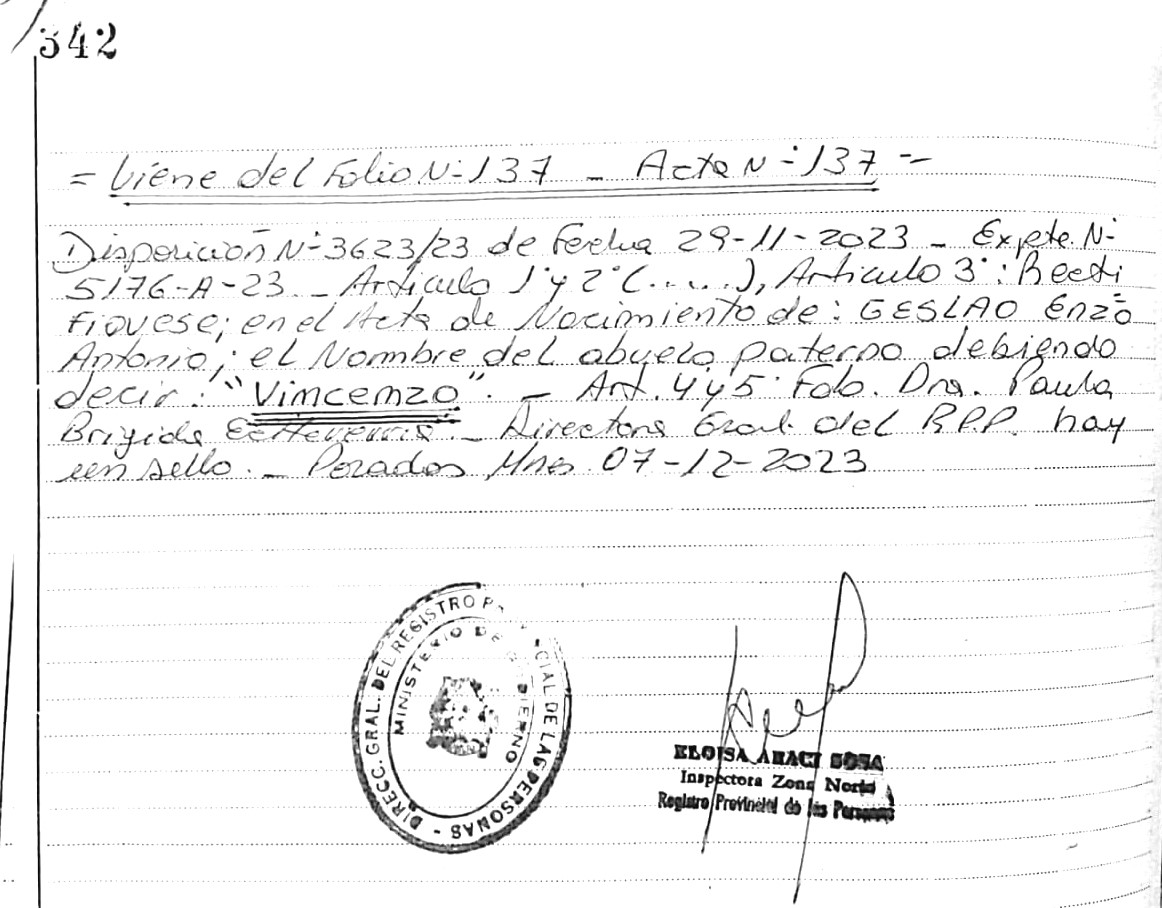 342
= Viene del Folio N-137 - Acta N-137 --
Disposición N-3623/23 de Fecha 29-11-2023 - Expte. N-
5176-A-23 - Articulo 1° y 2° (.....), Articulo 3°: Recti
Fiquese; en el Acta de Nacimiento de: GESLAO Enzo
Antonio; el Nombre del abuelo paterno debiendo
decir: "Vincenzo". - Art. 4 y 5° Fdo. Dra. Paula
Brigida - Directora Gral. del R.P.P. hay
un sello. - Posadas, Mnes 07-12-2023
DIRECC. GRAL. DEL REGISTRO CIAL DE LAS PERSONAS -
MINISTERIO DE GOBIERNO
ELOISA ARACI SOSA
Inspectora Zona Norte
Registro Provincial de las Personas